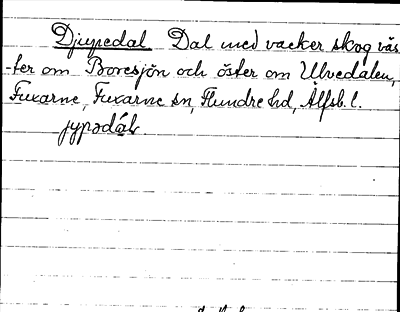 Djupedal Dal med vacker skog väs
-ter om Boresjön och öster om Ulvedalen,
Fuxarne, Fuxarne sn, Flundre hd, Älfsb. l.
jypədáb.